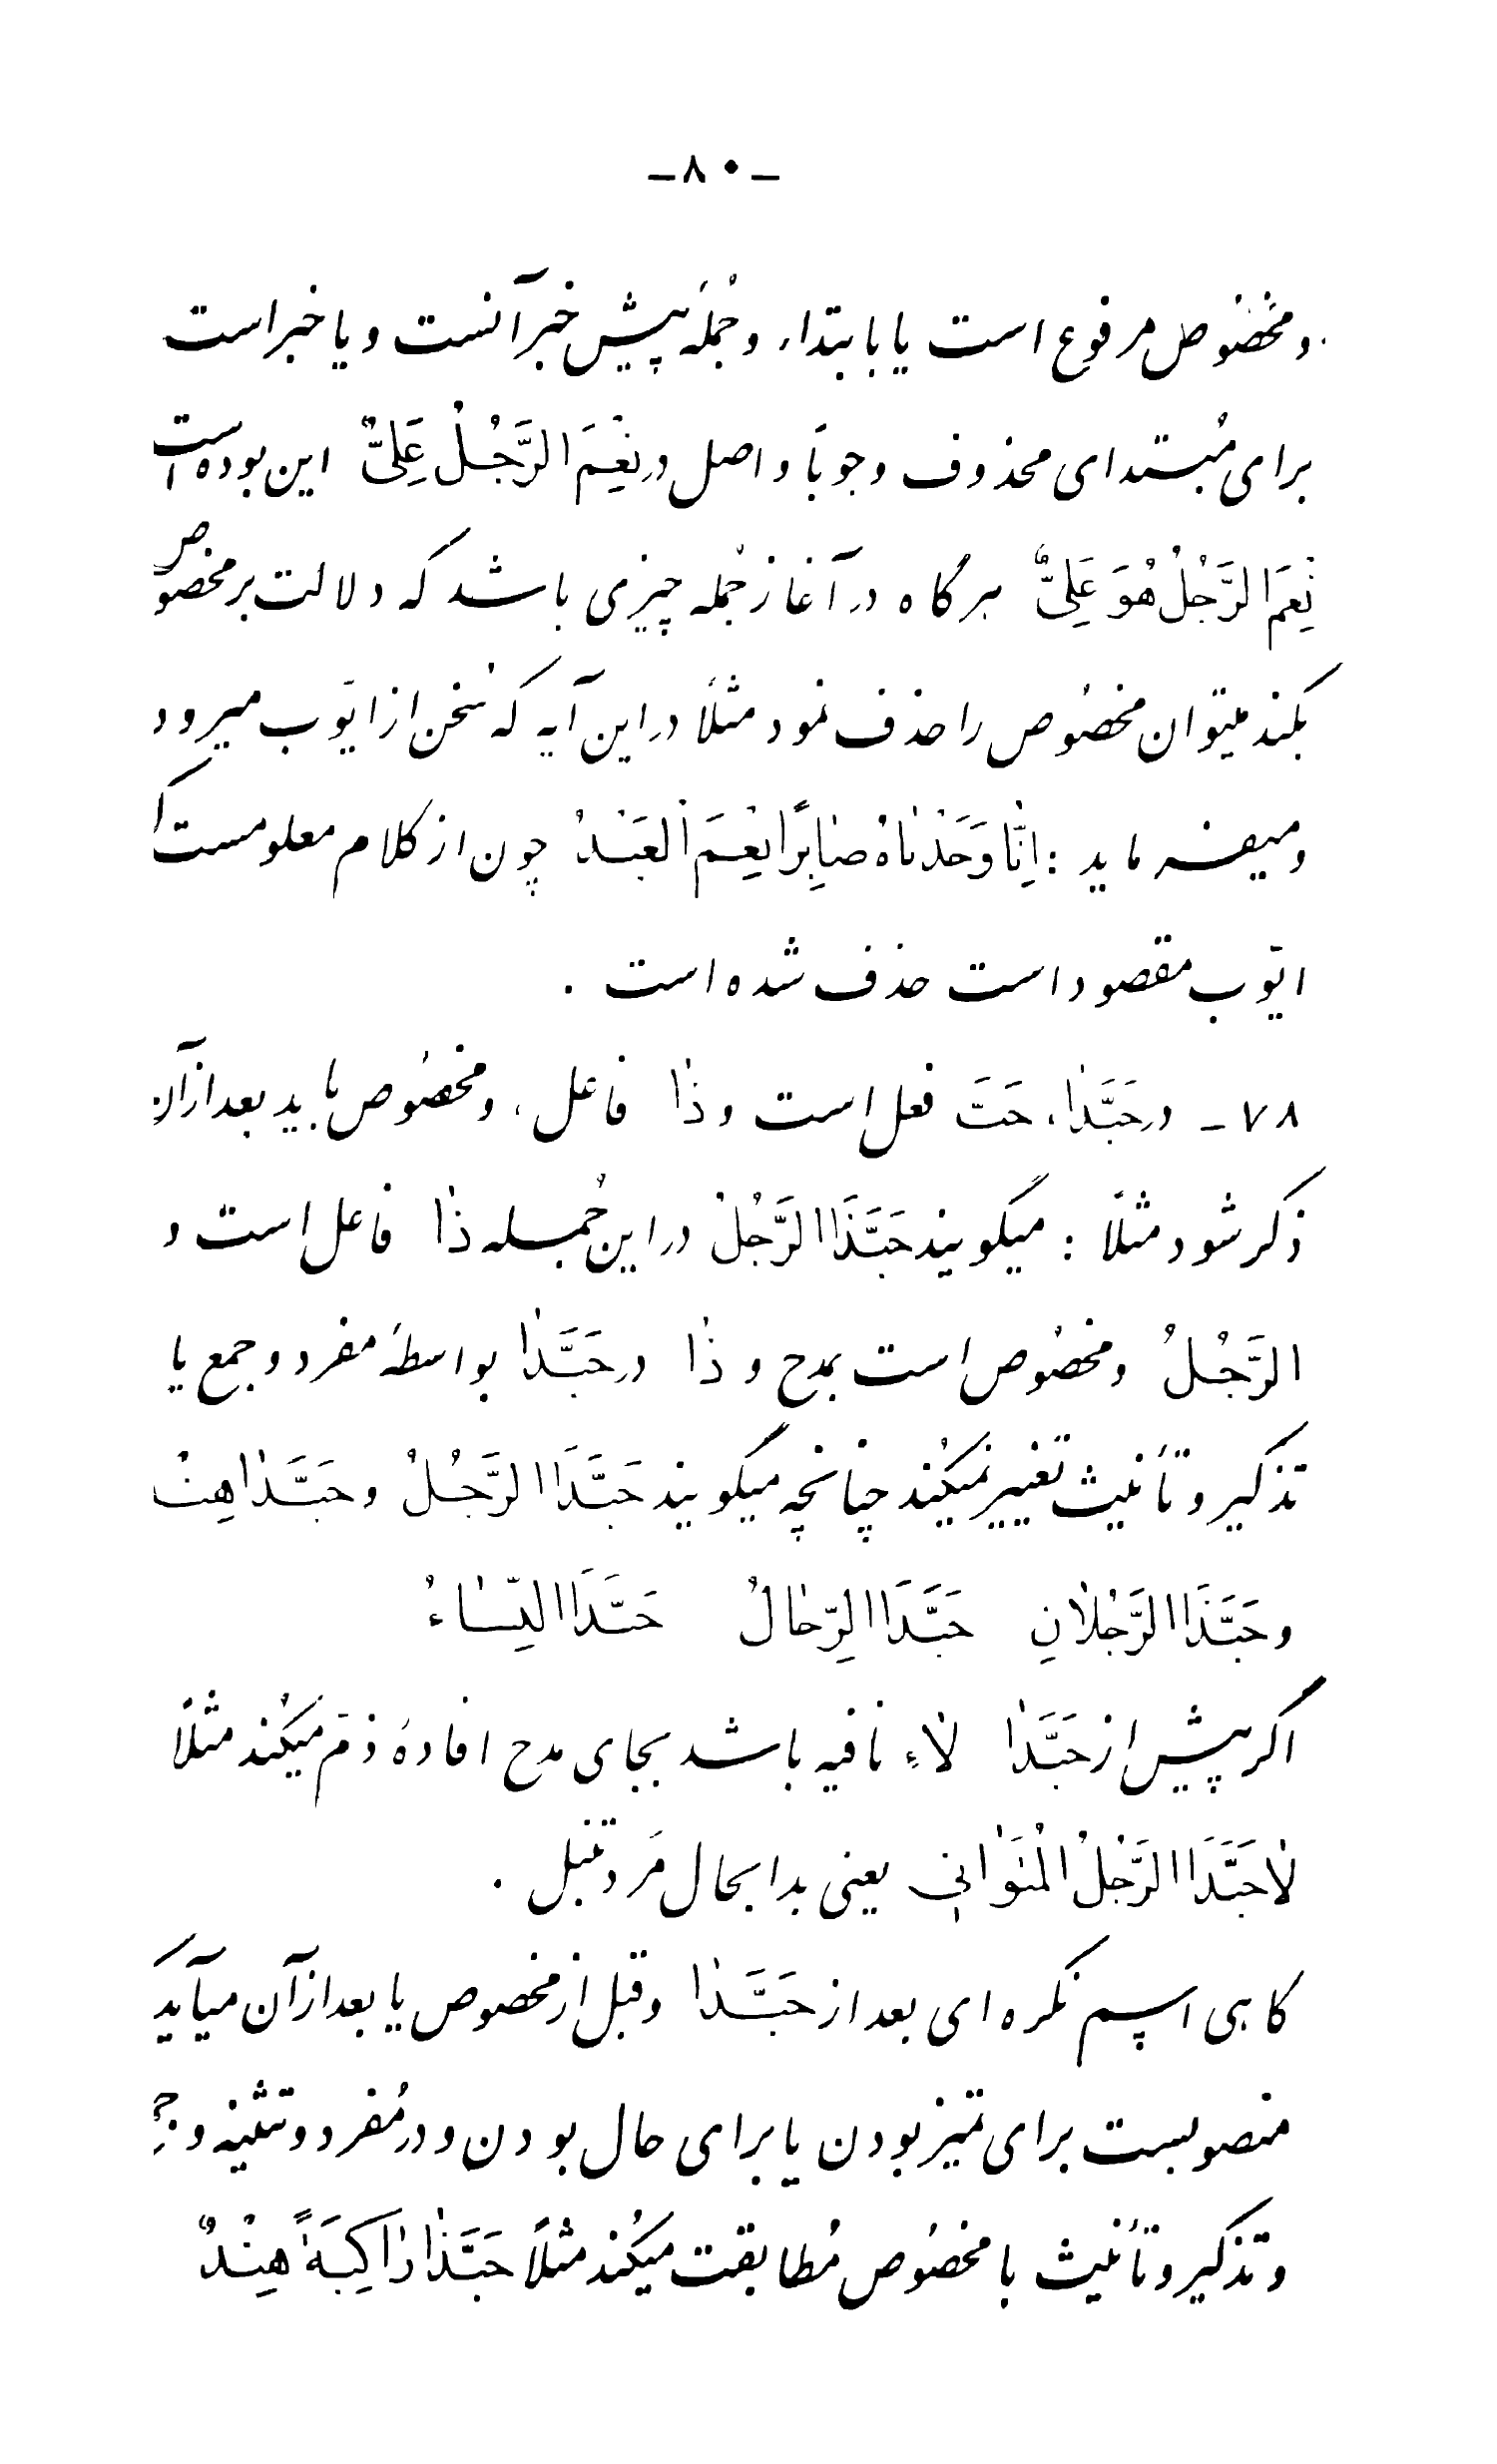 -۸۰-
و مخصُوص مرفوع است یا بابتداء و جُمله پیش خبر آنست و یا خبر است
برای مُبتدای محذوف وجوباً و اصل در نِعْمَ الرَّجُلُ عَلِیٌّ این بوده است
نِعْمَ الرَّجُلُ هُوَ عَلِیٌّ هرگاه در آغاز جُمله چیزی باشد که دلالت بر مخصوص
بکند میتوان مخصُوص را حذف نمود مثلاً در این آیه که سُخن از ایّوب میرود
و میفرماید : اِنّٰا وَجَدْنٰاهُ صٰابِرًا نِعْمَ الْعَبْدُ چون از کلام معلومست که
ایّوب مقصود است حذف شده است .
۷۸ - در حَبَّذٰا، حَبَّ فعل است و ذٰا فاعل ، و مخصُوص باید بعد از آن
ذکر شود مثلاً : میگویند حَبَّذَا الرَّجُلُ در این جُمله ذٰا فاعل است و
الرَّجُلُ و مخصُوص است بمدح و ذٰا در حَبَّذٰا بواسطهٔ مفرد و جمع یا
تذکیر و تأنیث تغییر نمیکُند چنانچه میگویند حَبَّذَا الرَّجُلُ و حَبَّذٰا هِنْدُ
و حَبَّذَا الرَّجُلٰانِ حَبَّذَا الرِّجٰالُ حَبَّذَا النِّسٰاءُ
اگر پیش از حَبَّذٰا لٰاءِ نافیه باشد بجای مدح افادهٔ ذمّ میکُند مثلاً
لٰا حَبَّذَا الرَّجُلُ الْمُتَوٰانی یعنی بدا بحال مَرد تنبل .
گاهی اسم نکره ای بعد از حَبَّذٰا و قبل از مخصوص یا بعد از آن میآید که
منصوبست برای تمیز بودن یا برای حال بودن و در مُفرد و تثنیه و جمع
و تذکیر و تأنیث با مخصُوص مُطابقت میکُند مثلاً حَبَّذٰا رٰاکِبَةً هِنْدٌ